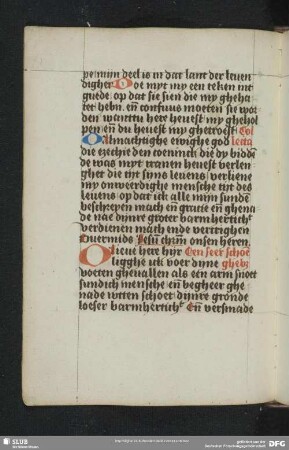 pe mijn deel is in dat lant der leuen
digher Doe myt my een teken int
guede op dat sie sien die my gheha
tet hebn en confuus moeten sie wer
den wanttu here heuest my ghehol
pen en du heuest my ghetroest Col
Almachtighe ewighe god lecta
die ezechie den coeninck die dy bidden
de was myt tranen heuest verlen
ghet die tijt sijns leuens verliene
my onweerdighe mensche tijt des
leuens op dat ick alle mijn sunde
bescreyen mach en gracie en ghena
de nae dijnre groter barmherticheit
verdienen mach ende vercrighen
Ouermids Jesu christum onsen heren
O lieue here hijr Een seer schoe
ligghe ick voer dijne ghebet
voeten gheuallen als een arm snoet
sundich mensche en begheer ghe
nade wtten schoet dijnre gronde
loeser barmherticheit En versmade
SLUB
DFG